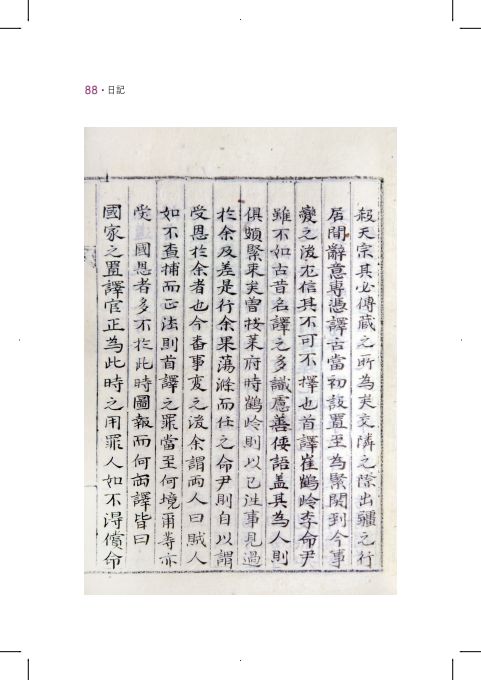 88 · 日記
殺天宗其必傳藏之所為矣交隣之際出疆之行
居間辭意專憑譯舌當初設置至為緊関到今事
變之後尤信其不可不擇也首譯崔鶴岭李命尹
雖不如古昔名譯之多識慮善倭語盖其為人則
俱頗緊束矣曽按萊府時鶴岭則以已往事見過
於余及差是行余果蕩滌而任之命尹則自以謂
受恩於余者也今番事變之後余謂兩人曰賊人
如不查捕而正法則首譯之罪當至何境爾等亦
受 國恩者多不於此時圖報而何兩譯皆曰
國家之置譯官正為此時之用罪人如不得償命